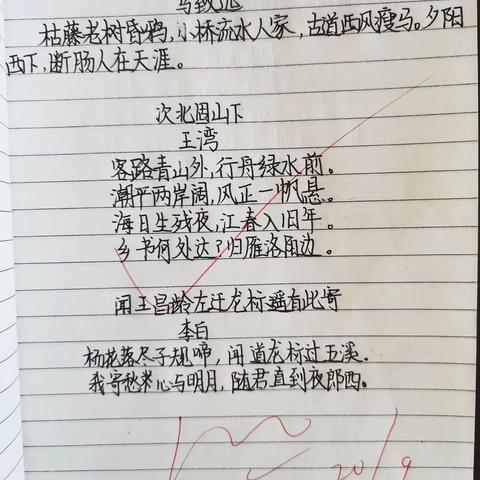 马致远
枯藤老树昏鸦,小桥流水人家,古道西风瘦马。夕阳
西下,断肠人在天涯。
次北固山下
王湾
客路青山外,行舟绿水前。
潮平两岸阔,风正一帆悬。
海日生残夜,江春入旧年。
乡书何处达?归雁洛阳边。
闻王昌龄左迁龙标遥有此寄
李白
杨花落尽子规啼,闻道龙标过五溪.
我寄愁心与明月,随君直到夜郎西。
20/9